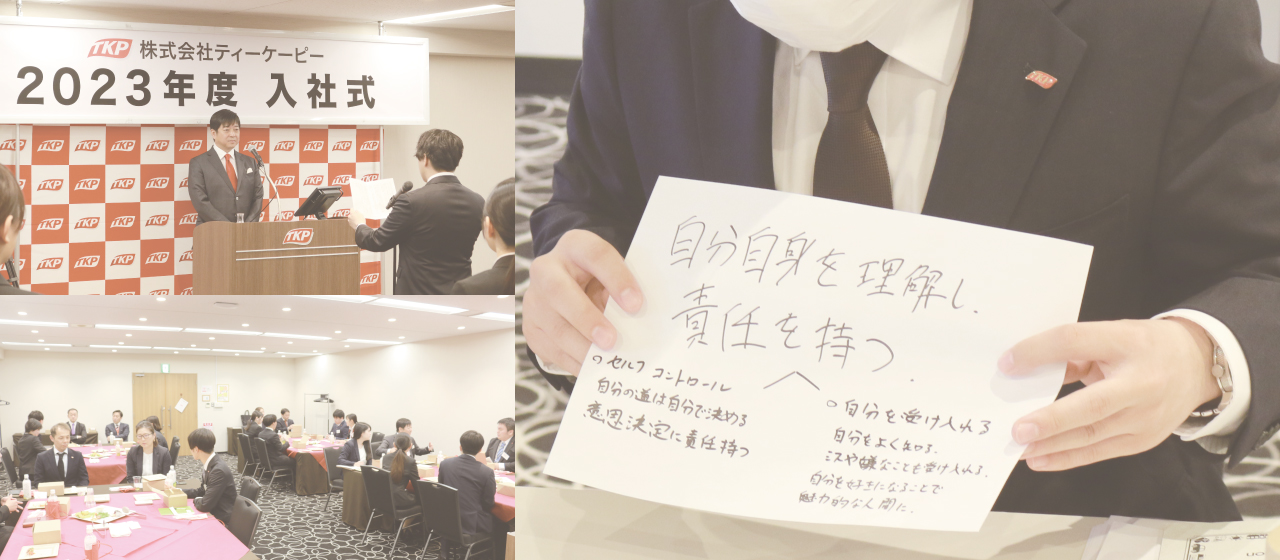 TKP 株式会社ティーケーピー
2023年度 入社式
TKP
TKP
自分自身を理解し、
責任を持つ。
○セルフコントロール
自分の道は自分で決める
意思決定に責任持つ
○自分を受け入れる
自分をよく知る。
ミスや嫌なことも受け入れる。
自分を好きになることで
魅力的な人間に。